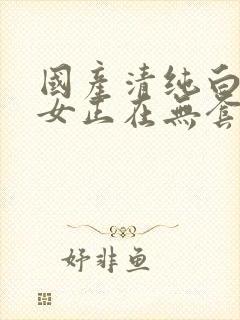 國產清純白
女正在無套
好非鱼